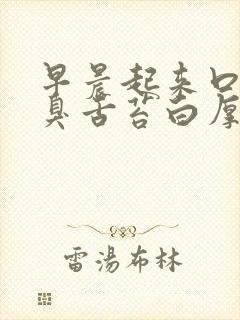 早晨起来口
臭舌苔白厚
雷湯布林